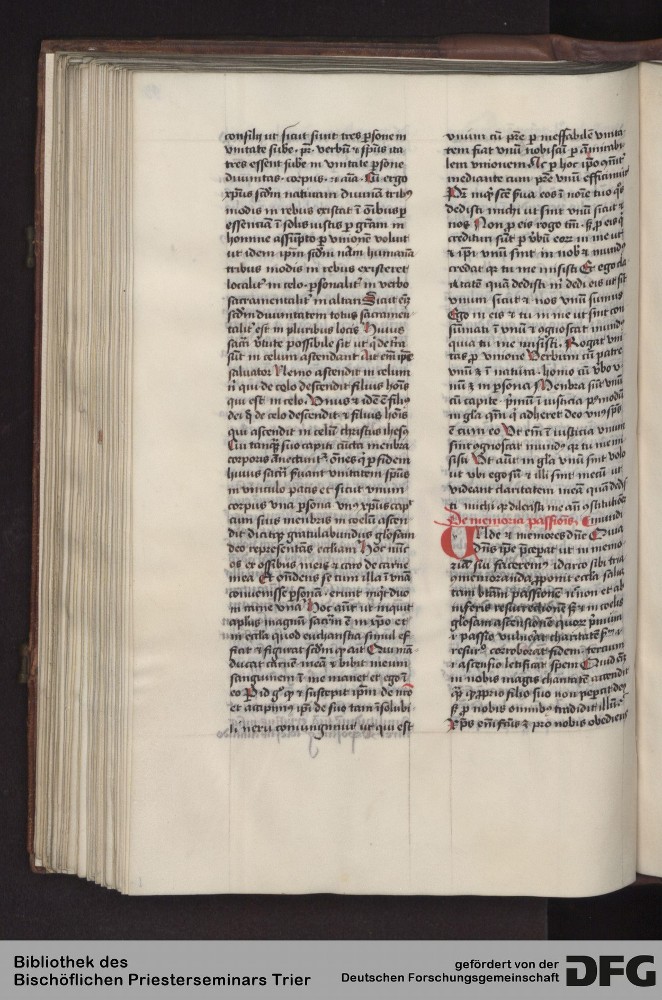 consilii ut sicut sunt tres psone in
vnitate sube · pr̃ · verbū ⁊ spūs ita
tres essent sube in vnitate psone
diuinitas · corpus · ⁊ aīa · Cū ergo
xpūs scdm naturam diuinā tribꝰ
modis in rebus existat ī oībus p
essenciā ī solis iustis p grām in
homine assūpto p vnionē voluit
ut idem ipm scdm nām humanā
tribus modis in rebus existeret
localiť in celo · psonaliť in verbo
sacramentaliť in altari Sicut em̄
scdm diuinitatem totus
taliť est in pluribus locis Huius
sacri vtute possibile sit ut q̄ de trā
sūt in celum ascendant Ait em̄ ipe
saluator Nemo ascendit in celum
n̄ qui de celo descendit filius hoīs
qui est in celo · Vnus ⁊ idē ē filiꝰ
dei q̄ de celo descendit ⁊ filius hoīs
qui ascendit in celū christus ihesꝰ
Cui tanq̄ suo capiti cūcta menbra
corporis ānectunť · ōnes q̄ p fidem
huius sacri seruant vnitatem spūs
in vinculo pacis et sicut vnum
corpus vna psona vnꝰ xpūs capť
cum suis menbris in celū ascen
dit dicitqȝ gratulabundus głosam
deo representās eccliam Hoc nūc
os ex ossibus meis ⁊ caro de carne
mea Et ondens se tum illa ī vnā
conuenisse psonā · erunt inqt duo
in carne vna Hoc aūt ut inquit
aplus magnū sacrm ē in xpo et
in ecclia quod eucharistia simul ef
ficit ⁊ figurat scdm q ait Qui mā
ducat carnē meā ⁊ bibit meum
sanguinem ī me manet et ego ī
eo Pid gͦ qȝ ⁊ suscepit ipm de nr̄o
et accipimꝰ ipi de suo tam īsolubi
li nexu coniungimur ut qui est
vnum cū pr̄e p ineffabilē vnita
tem fiat vnū nobiscū p admirabi
lem vnionem Ac p hoc ipo
mediante cum pr̄e vnū efficimur
Pr̄ inqt scē serua eos ī noīe tuo q̄s
dedisti michi ut sint vnū sicut ⁊
nos Non p eis rogo tm̄ · sȝ p eis q̄
credituri sūt p vbū eorꝝ in me ut
⁊ ipi vnū sint in nob ⁊ mundꝰ
credat qȝ tu me misisti Et ego cla
ritatē quā dedisti m̄ dedi eis ut sīt
vnum sicut ⁊ nos vnū sumus
Ego in eis ⁊ tu in me ut sint con
sūmati ī vnū ⁊ ognoscat mundꝰ
quia tu me misisti · Rogat vni
tas p vnione Verbum cū patre
vnū ē ī natura · homo cū vbo v
nū ē in psona Menbra sūt vnū
cū capite · pmū ī iusticia pꝰmodū
in gla qm̄ q adheret deo vnꝰ spūs
ē cum eo Vt em̄ ī iusticia vnum
sint ognoscat mundꝰ qȝ tu me mi
sisti Vt aūt in gla vnū sint volo
ut vbi ego sū ⁊ illi sint mecū ut
videant claritatem meā quā dedis
ti michi qȝ dilexisti me ān ꝯstitutiōeȝ
De memoria passiois · mundi
Valde ⁊ memores dn̄e Quia
dn̄s ipe pcepat ut in memo
riā sui faceremꝰ idarco sibi tria
ꝯmemoranda pponit ecclia scilic
tam btām passionē n̄ non et ab
inferis resurrectionē sȝ ⁊ in coelis
glosam ascensionē quorꝝ pmum
ı passio vulnerat charitatē
resur̄o corroborat fidem · tercium
ı ascensio letificat spem Quid em̄
in nobis magis charitatē accendit
q̄ qȝ pprio filio suo non pepcit deꝰ
sȝ p nobis omnibꝰ tradidit illū ·
Xpūs em̄ scūs ⁊ pro nobis obediens
Bibliothek des
Bischöflichen Priesterseminars Trier
gefördert von der
Deutschen Forschungsgemeinschaft
DFG